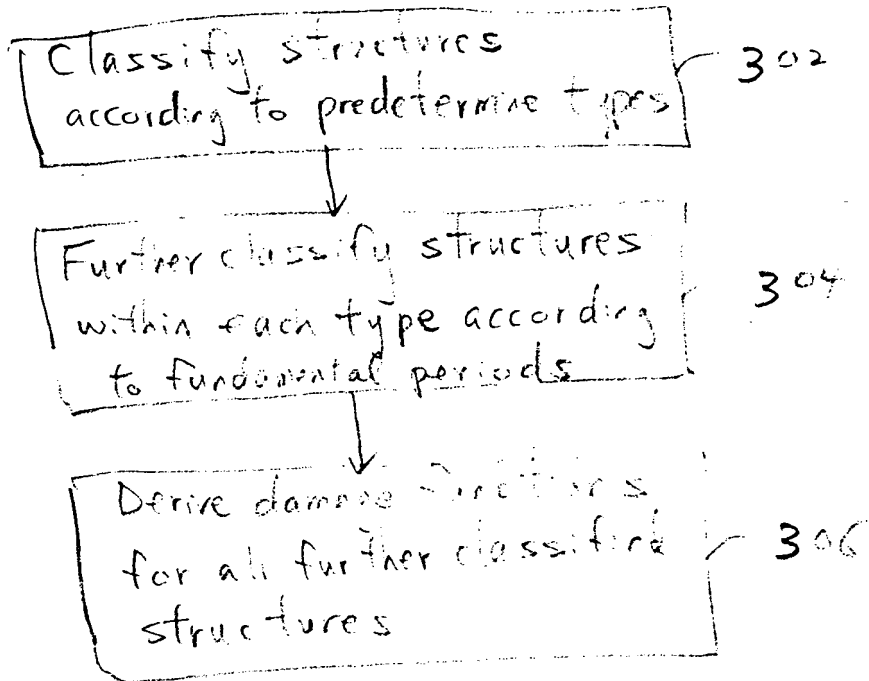 Classify structures
according to predetermine types
302
Further classify structures
within each type according
to fundamental periods
304
Derive damage functions
for all further classified
structures
306